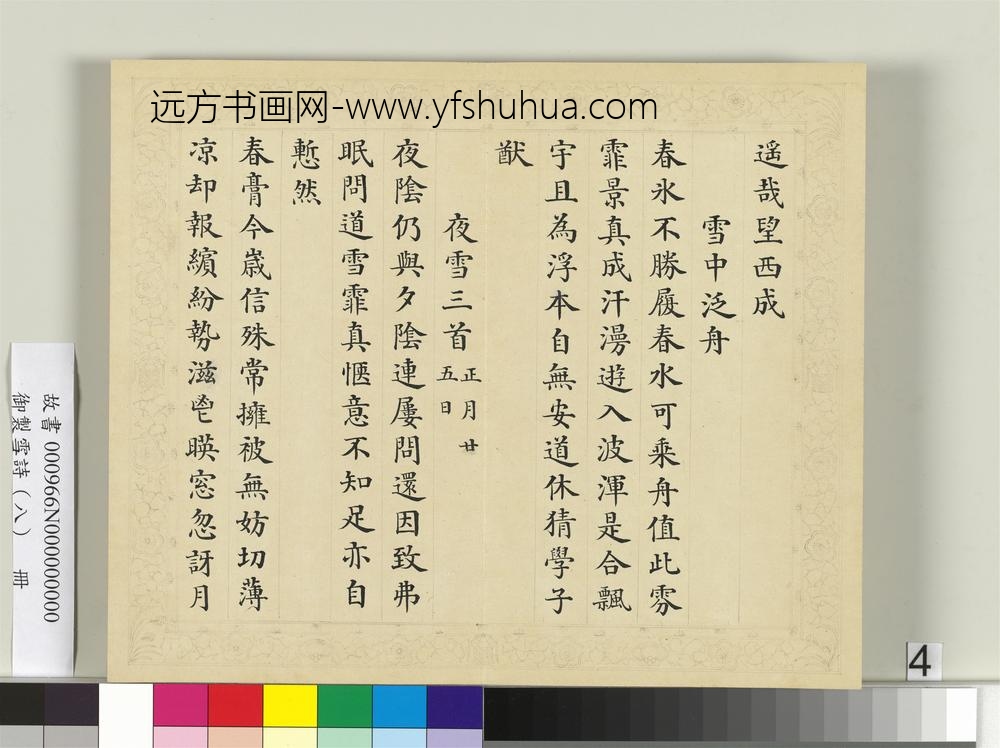 远方书画网-www.yfshuhua.com
遥哉望西成
雪中泛舟
春氷不勝履春水可乘舟值此雰
霏景真成汗漫遊入波渾是合飄
宇且為浮本自無安道休猜學子
猷
夜雪三首 正月廿五日
夜陰仍與夕陰連屢問還因致弗
眠問道雪霏真愜意不知足亦自
慙然
春膏今歲信殊常擁被無妨切薄
凉却報繽紛勢滋邑暎窓忽訝月
故書 000966N000000000
御製雪詩（八） 冊
4